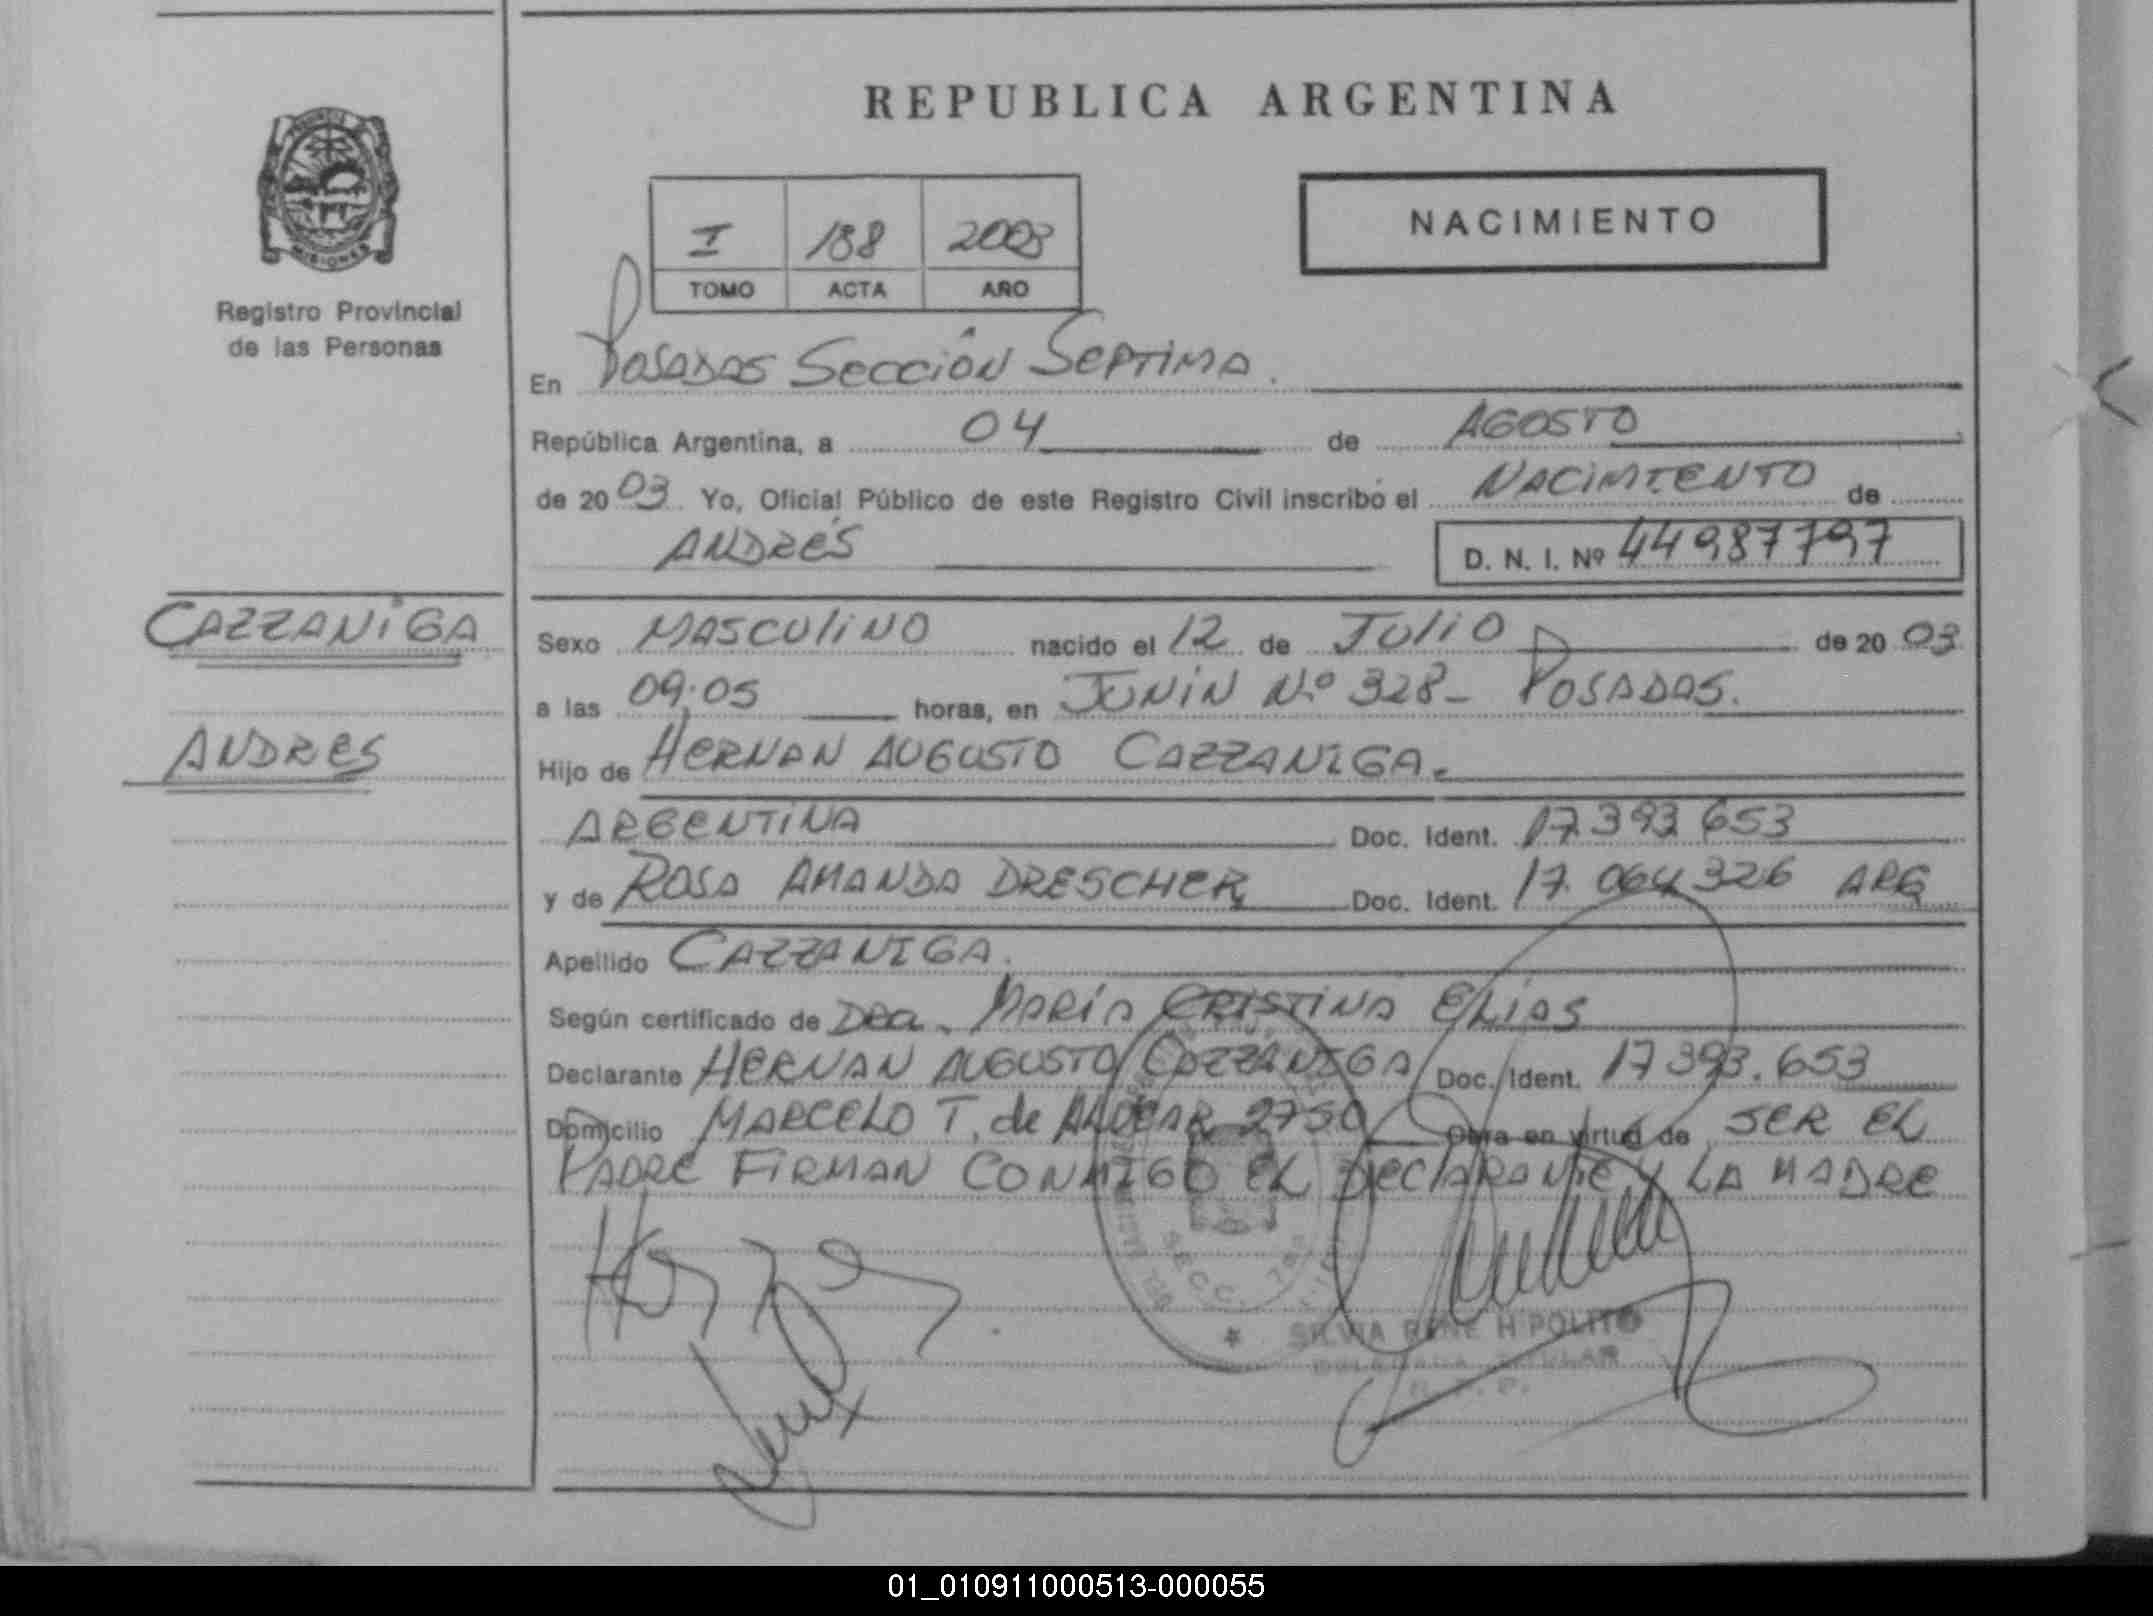 REPUBLICA ARGENTINA
PROVINCIA
MISIONES
Registro Provincial
de las Personas
I 188 2003
TOMO ACTA AÑO
NACIMIENTO
En Posadas Sección Septima.
República Argentina, a 04 de AGOSTO
de 2003 Yo, Oficial Público de este Registro Civil inscribo el NACIMIENTO de
ANDRÉS D. N. I. Nº 44987797
CAZZANIGA
ANDRES
Sexo MASCULINO nacido el 12 de JULIO de 2003
a las 09:05 horas, en JUNIN Nº 328- POSADAS.
Hijo de HERNAN AUGUSTO CAZZANIGA.
ARGENTINA Doc. Ident. 17.393.653
y de ROSA AMANDA DRESCHER Doc. Ident. 17.064.326 ARG
Apellido CAZZANIGA.
Según certificado de Dra. MARÍA CRISTINA ELÍAS
Declarante HERNAN AUGUSTO CAZZANIGA Doc. Ident. 17393.653
Domicilio MARCELO T. de ALVEAR 2750 Obra en virtud de SER EL
PADRE FIRMAN CONMIGO EL DECLARANTE Y LA MADRE
SECC. 7
SILVIA RENE HIPOLITO
DELEGADA TITULAR
01_010911000513-000055